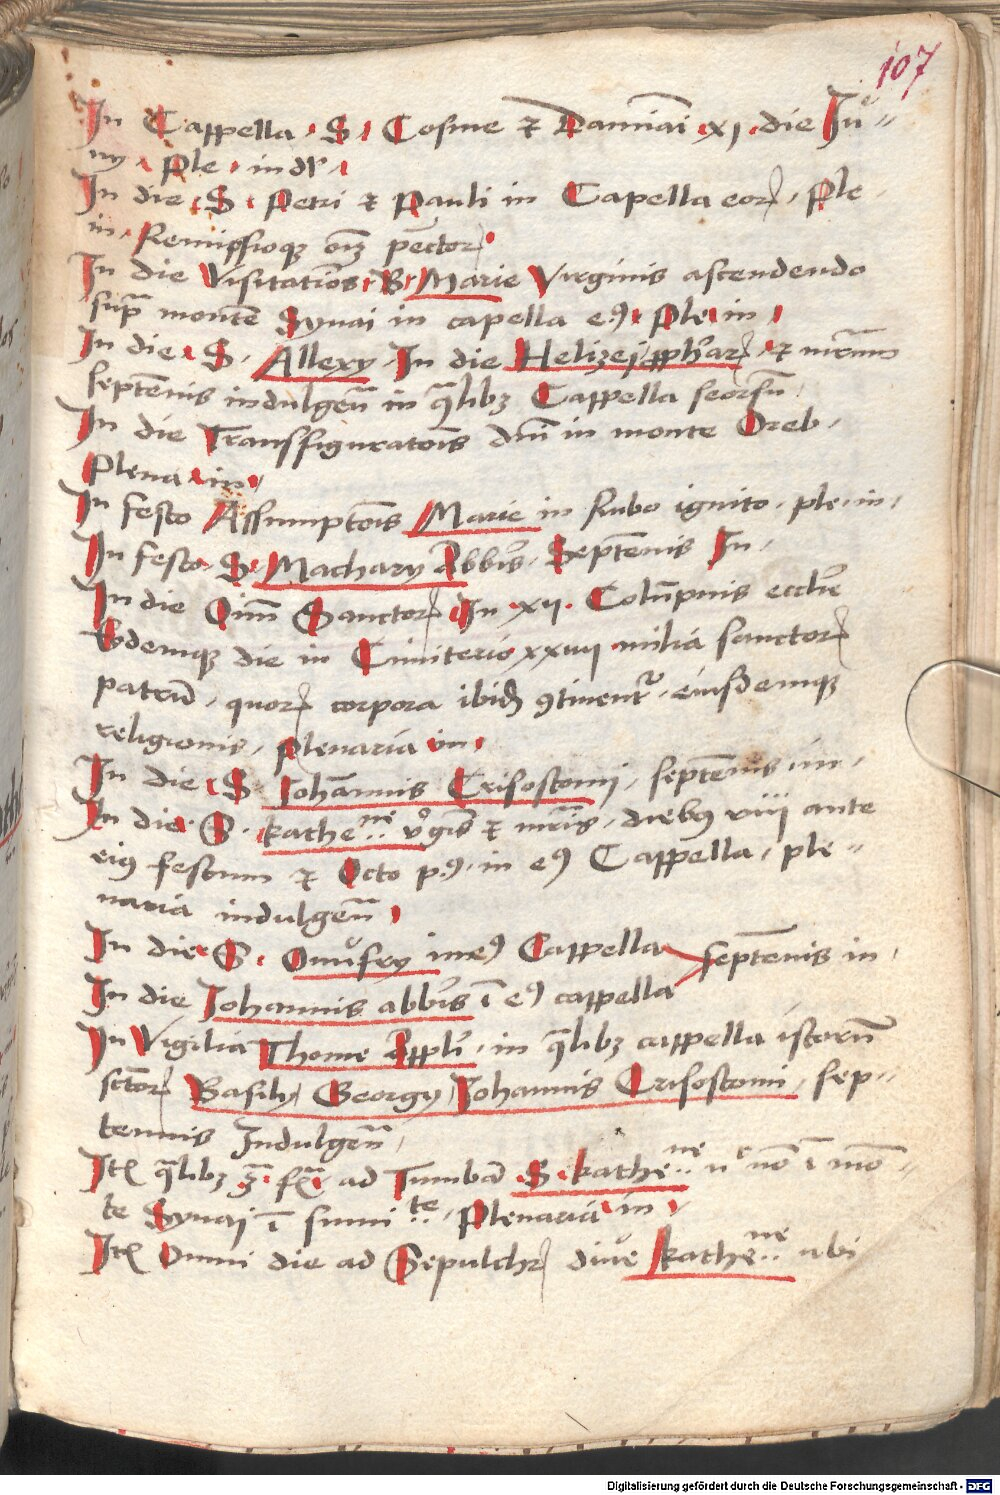 107
In Cappella S Cosme et Damiani xj die Ju-
nij ple indᷣ
In die S Petri et Pauli in Capella eorꝝ ple
in Remissioqꝫ om̄ pctorꝝ
In die Visitatiōis B Marie Virginis ascendendo
supra monte Synai in capella eꝰ ple in
In die S Allexy In die Helizej pphar et
septēnis indulgen̄ in qlibꝫ Cappella seorsū
In die Transfiguratōis dni in monte Oreb
Plena in
In festo Assumptōis Marie in Rubo ignito ple in
In festo S Machary Abbīs Septēnis In
In die Oīm Sanctorꝝ In xij Colūpnis ecclīe
Eodemqꝫ die in Cimiterio xxiiij milia sanctorꝝ
patrū quorꝝ corpora ibid ꝯtinent eiusdemqꝫ
religionis plenaria in
In die S Johannis Crisostomi septēnis in
In die S kathe ne vgīs et mris diebꝰ viij ante
eiꝰ festum et Octo pꝰ in eꝰ Cappella ple-
naria indulgen̄
In die S Onufry in eꝰ Cappella septēnis in
In die Johannis abbīs ī eꝰ cappella
In Vigilia Thome Appli in qlibꝫ cappella istorū
sctorꝝ Basily Georgy Johannis Crisostomi sep-
tennis Indulgen̄
Itꝫ qlibꝫ fꝫ ad Tumbā S kathe ne ī mō-
te Synaj ī sumi te Plenaria in
Itꝫ Omni die ad Sepulchrꝫ dive kathe ne ubi
Digitalisierung gefördert durch die Deutsche Forschungsgemeinschaft - DFG